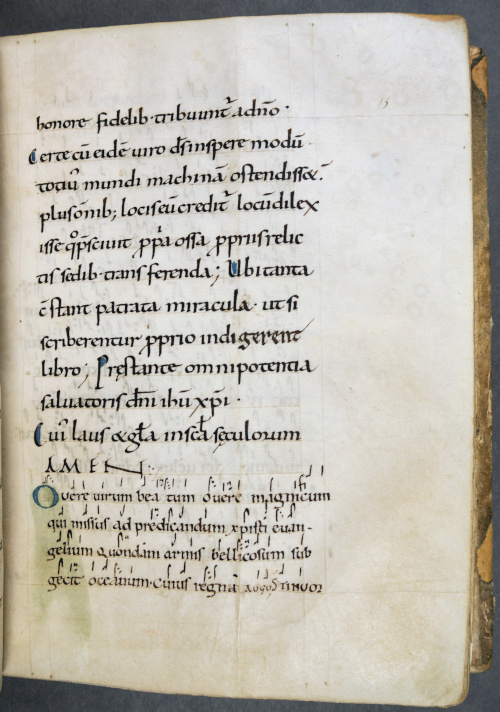 honore fidelib· tribuunt̄ a dn̄o·
Certe cū eidē viro d̄s inspere modū
totiꝰ mundi machinā ostendisse&.
plus om̄ib; locis eū credit̄ locū dilex
isse q̊ p̄scivit ꝓp̄a ossa ꝓpriis relic
tis sedib· transferenda; Ubi tanta
c̄stant patrata miracula· ut si
scriberentur ꝓprio indigerent
libro; Pręstante omnipotentia
salvatoris dn̄i ihū xp̄i·
Cui laus & gl̄a in sc̄la sęculorum
AMEN·
O vere virum beatum o vere magnicum
qui missus ad predicandum xpisti evan-
gelium quondam armis bellicosum sub
gecit oceanum· Cuius regna